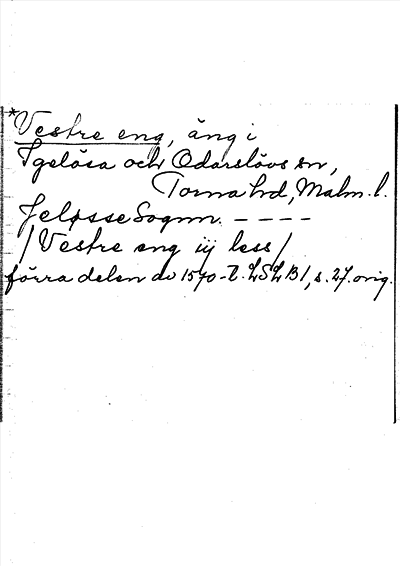 *Vestre eng, äng i
Igelösa och Odarslövs sn,
Torna hd, Malm. l.
Jeløsse Sognn. – – – –
/ Vestre eng iij less /
förra delen av 1570-t. LSLB 1, s. 27. orig.